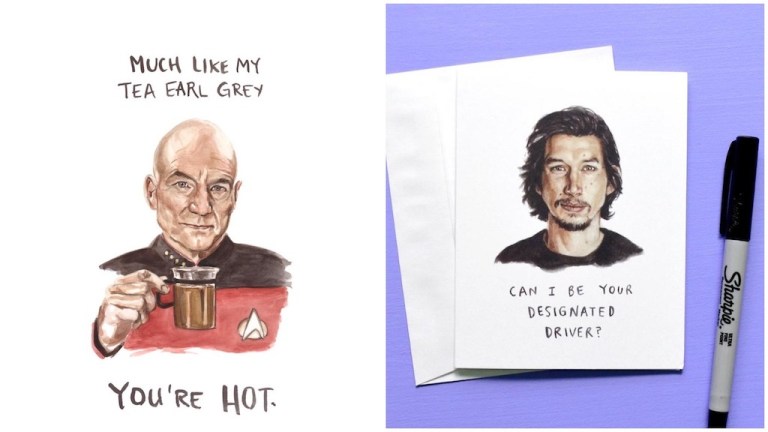 MUCH LIKE MY
TEA EARL GREY
YOU'RE HOT.
CAN I BE YOUR
DESIGNATED
DRIVER?
Sharpie